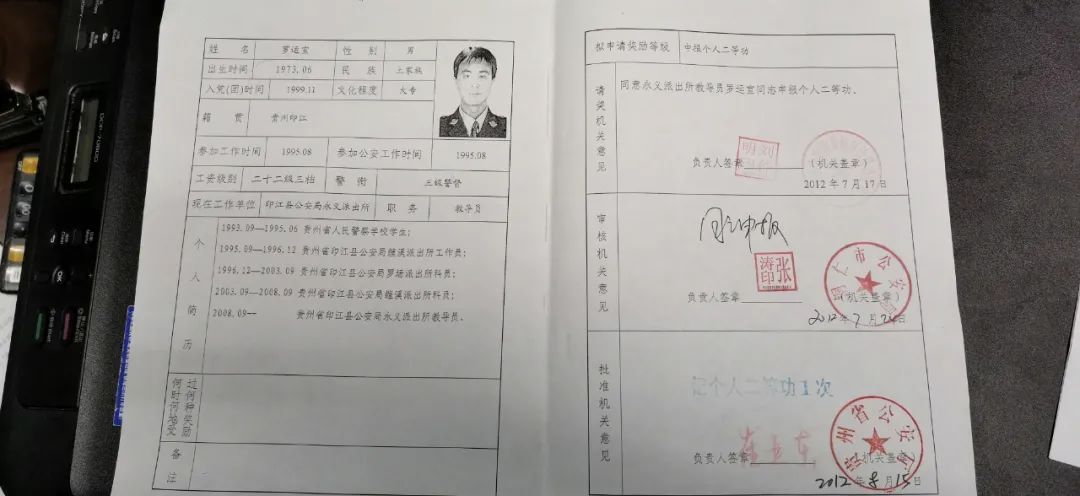 姓 名 罗运宣 性 别 男
出生时间 1973.06 民 族 土家族
入党(团)时间 1999.11 文化程度 大专
籍 贯 贵州印江
参加工作时间 1995.08 参加公安工作时间 1995.08
工资级别 二十二级三档 警 衔 三级警督
现在工作单位 印江县公安局永义派出所 职 务 教导员
个人简历
1993.09—1995.06 贵州省人民警察学校学生;
1995.09—1996.12 贵州省印江县公安局 溪派出所工作员;
1996.12—2003.09 贵州省印江县公安局罗场派出所科员;
2003.09—2008.09 贵州省印江县公安局 溪派出所科员;
2008.09— 贵州省印江县公安局永义派出所教导员。
何时何地受过何种奖励
备注
拟申请奖励等级 申报个人二等功
请奖机关意见
同意永义派出所教导员罗运宣同志申报个人二等功。
负责人签章 (机关签章)
2012年7月17日
审核机关意见
同意申报
张涛印
铜仁市公安局
负责人签章 (机关签章)
2012年7月24日
批准机关意见
记个人二等功1次
贵州省公安厅
负责人签章 (机关签章)
2012年8月15日